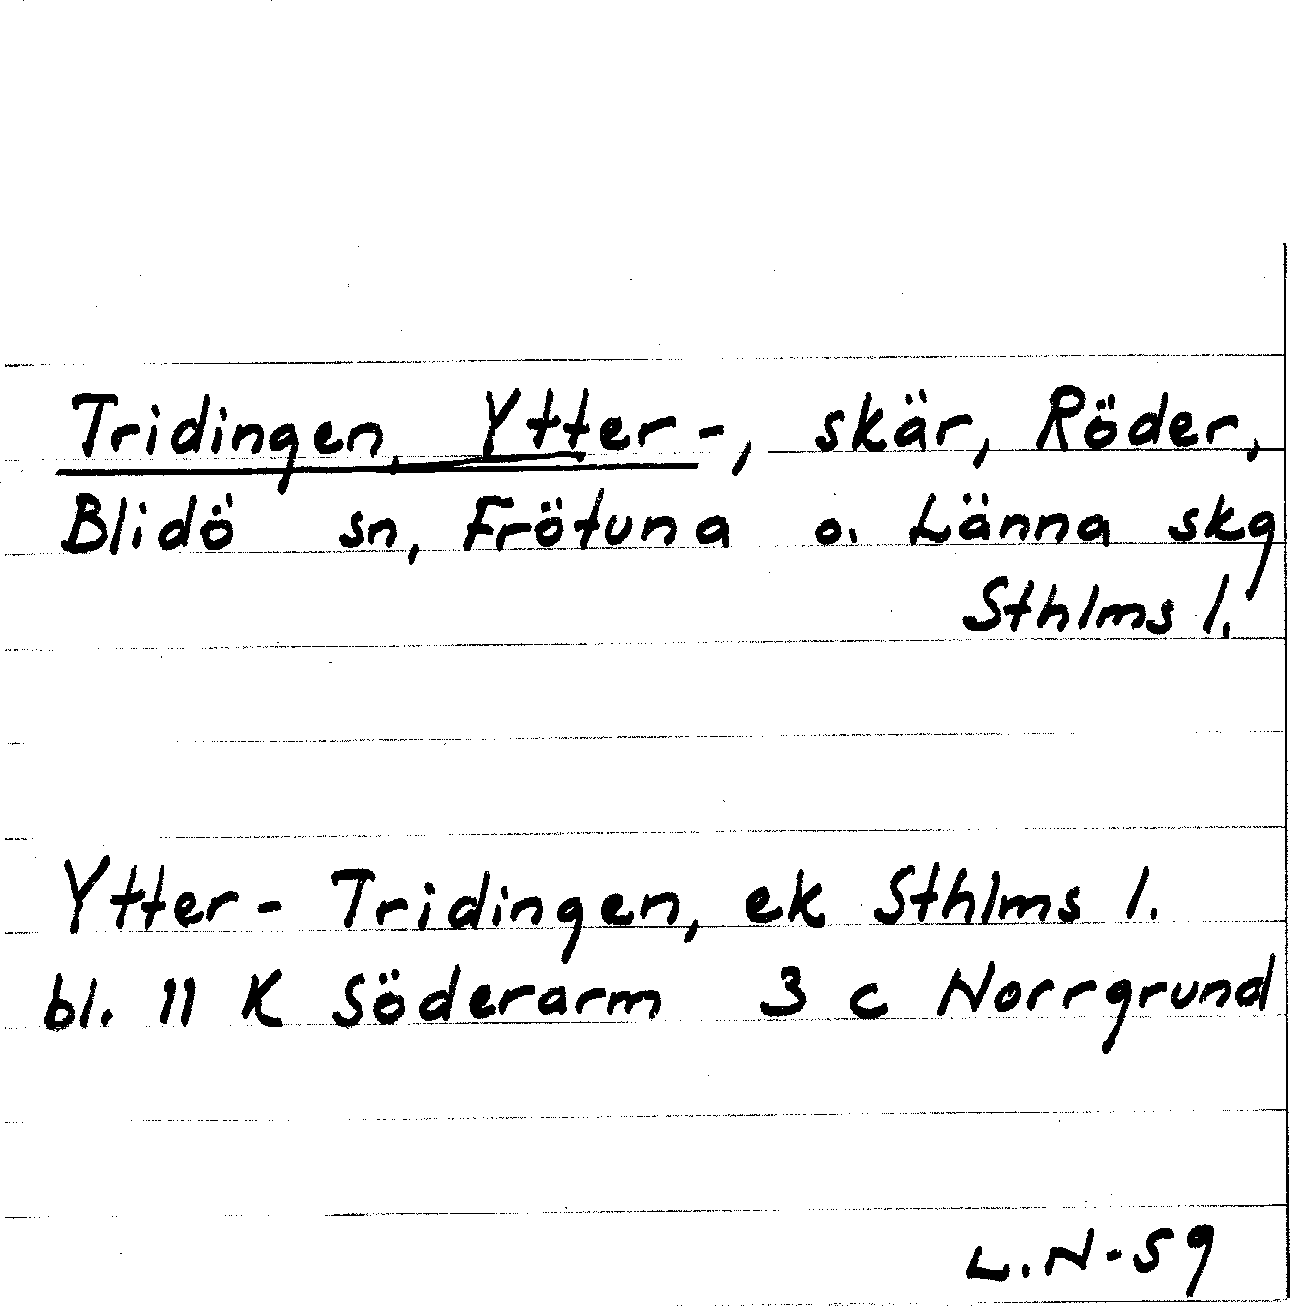 Tridingen, Ytter-, skär, Röder,
Blidö sn, Frötuna o. Länna skg
Sthlms l.
Ytter-Tridingen, ek Sthlms l.
bl. 11 K Söderarm 3 c Norrgrund
L.N-59